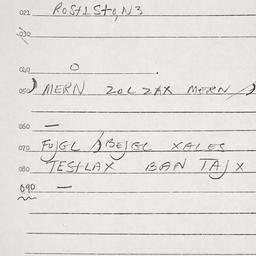 021 ROSt1 Sto, N3
030
040 O
050 MERN ZOLZAX MERN
060 —
070 FUJGL BEJGL XALES
080 TESTLAX BAN TAJX
090 —